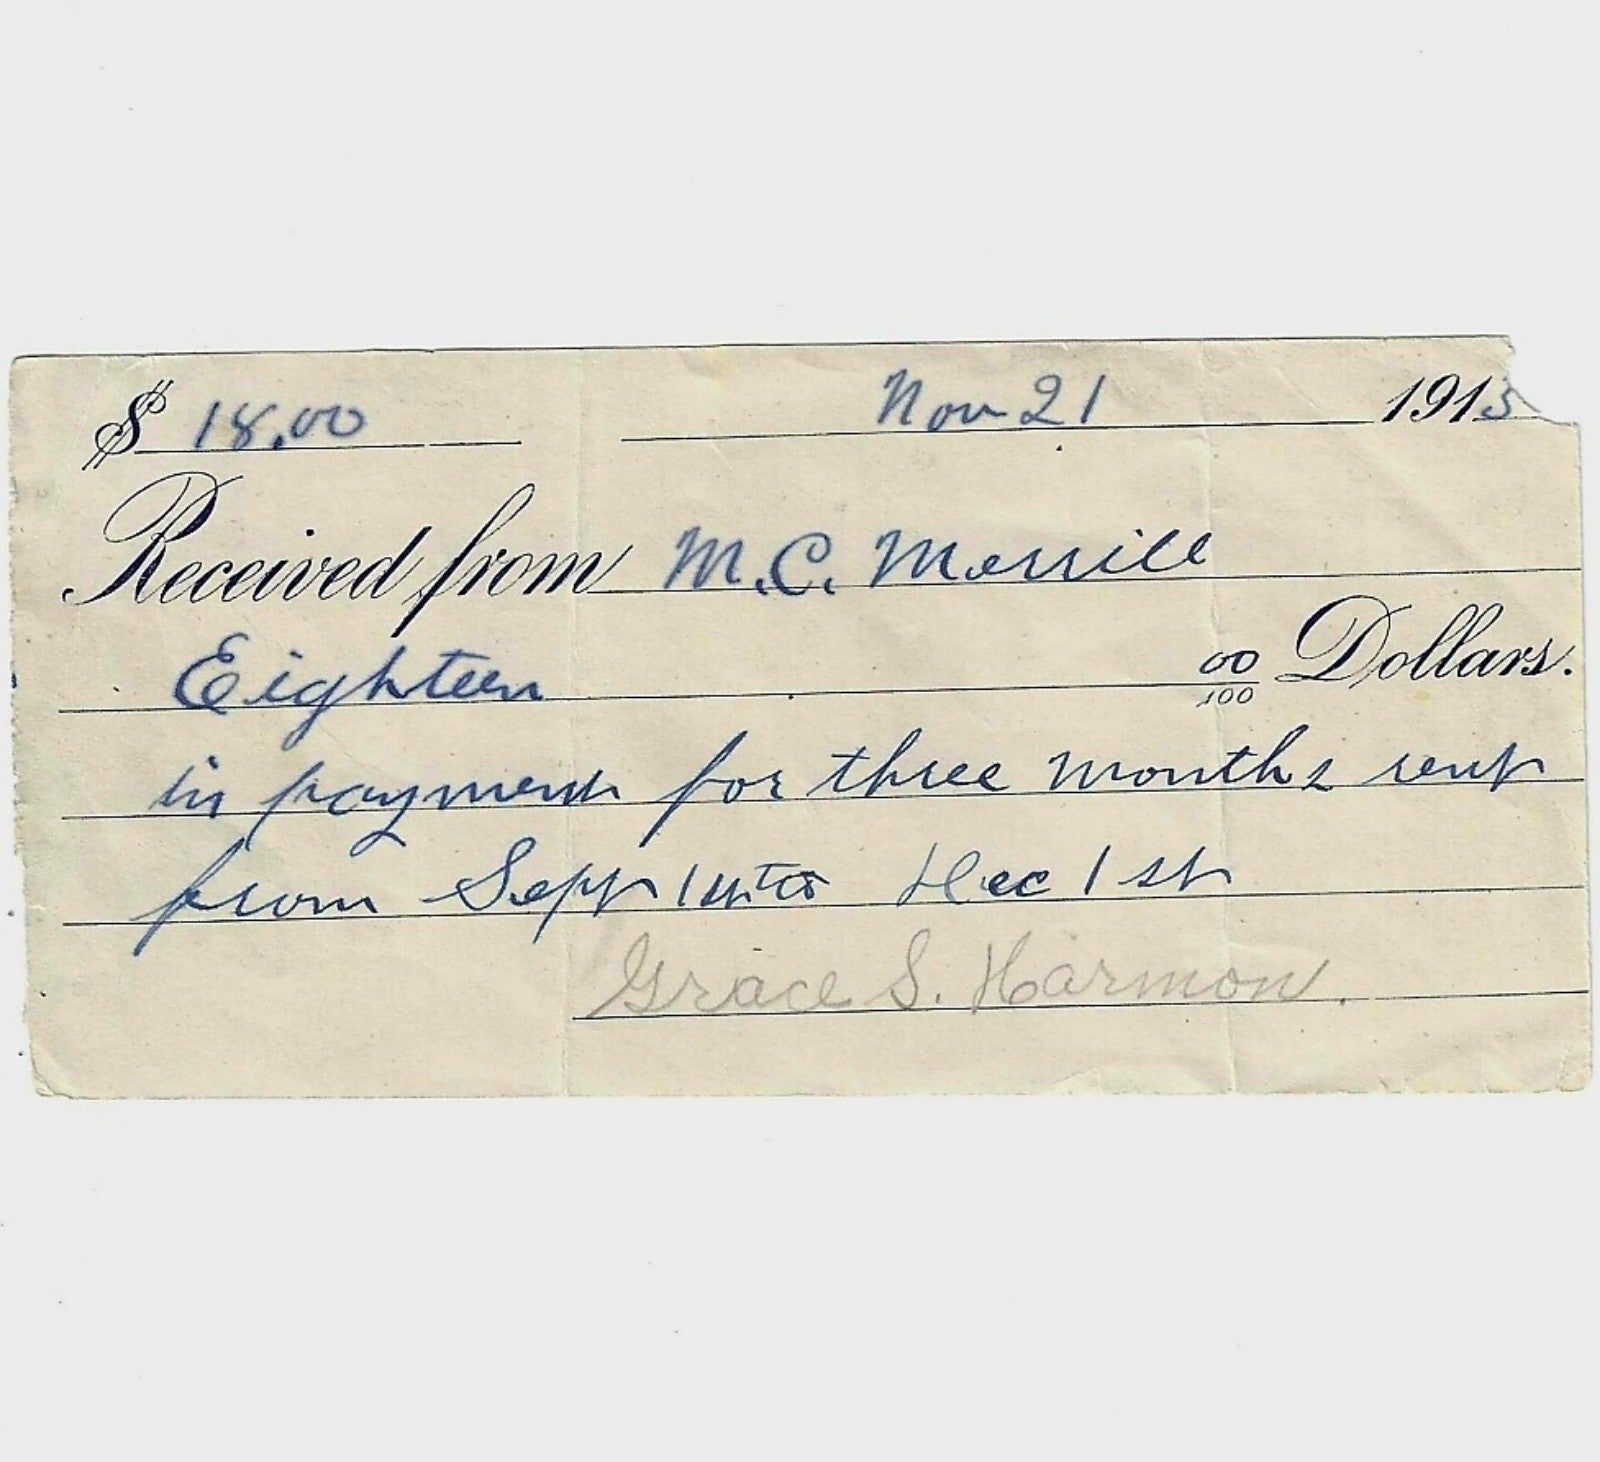 $ 18.00 Nov 21 1913
Received from M. C. Merrill
Eighteen 00/100 Dollars.
in payment for three months rent
from Sept 1st to Dec 1st
Grace S. Harmon.